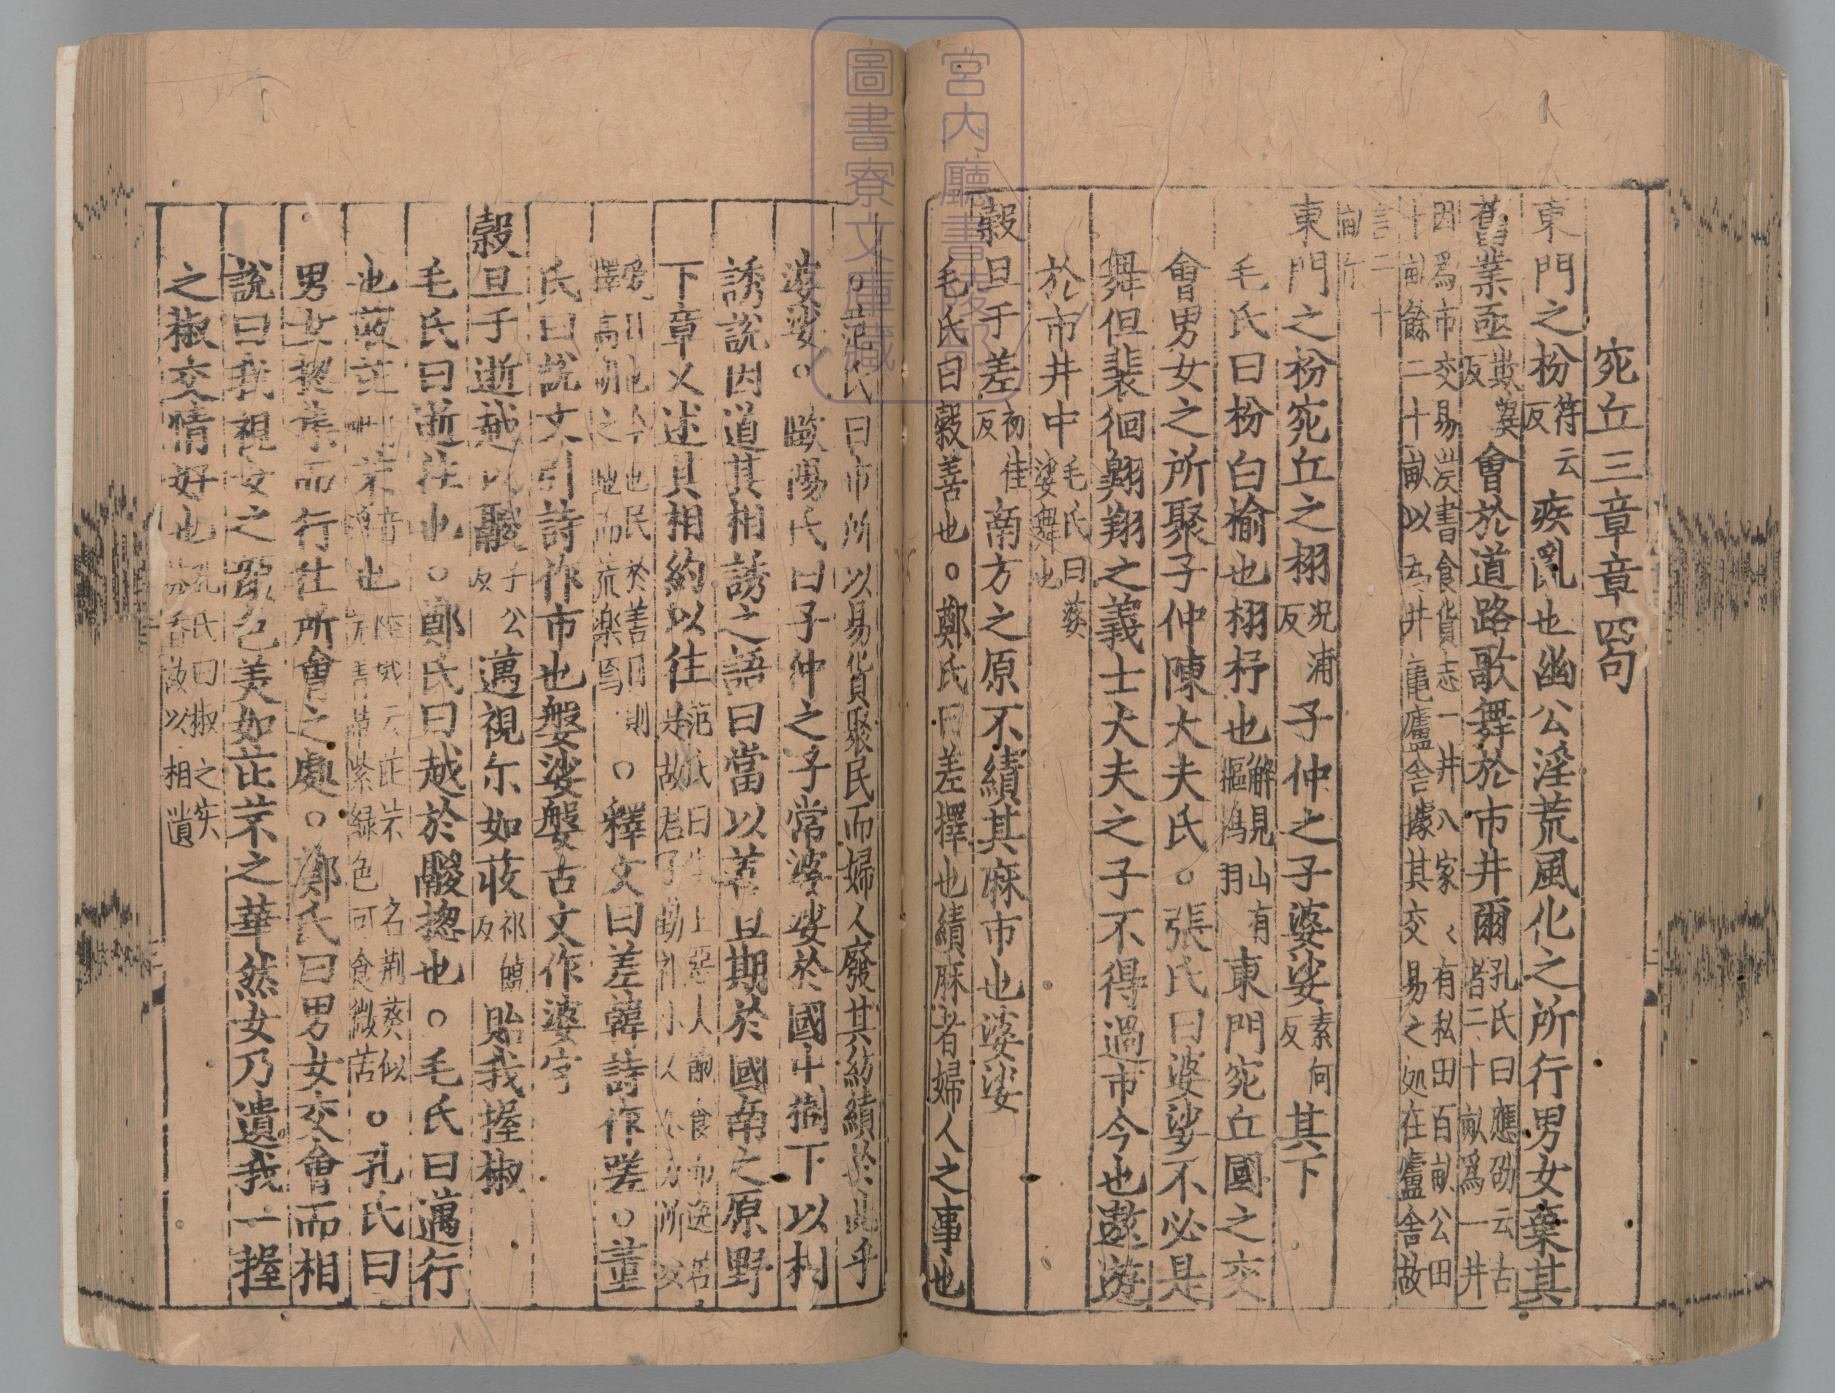 宛丘三章章四句
東門之枌符云反疾亂也幽公淫荒風化之所行男女棄其
舊業亟欺冀反會於道路歌舞於市井爾孔氏曰應劭云古者二十畝爲一井
因爲市交易漢書食貨志一井八家家有私田百畝公田
十畝餘二十畝以爲井竈廬舍據其交易之処在廬舍故
言二十
畝
東門之枌宛丘之栩況浦反子仲之子婆娑素何反其下
毛氏曰枌白榆也栩杼也解見山有樞鴇羽東門宛丘國之交
會男女之所聚子仲陳大夫氏○張氏曰婆娑不必是
舞但裴徊翱翔之義士大夫之子不得過市今也遨遊
於市井中毛氏曰婆娑舞也
穀旦于差初佳反南方之原不績其麻市也婆娑
毛氏曰穀善也○鄭氏曰差擇也績麻者婦人之事也
○范氏曰市所以易貨聚民而婦人廢其紡績於此乎
婆娑○歐陽氏曰子仲之子常婆娑於國中樹下以相
誘說因道其相誘之語曰當以善旦期於國南之原野
下章又述其相約以往范氏曰上惡人
氏曰說文引詩作市也媻娑媻古文作婆字
○釋文曰差韓詩作嗟○董
穀旦于逝越以鬷子公反邁視尔如荍祁饒反貽我握椒
毛氏曰逝往也○鄭氏曰越於鬷揔也○毛氏曰邁行
也荍芘芣也名荊葵似紫綠色可食微苦○孔氏曰
男女聚集而行往所會之處○鄭氏曰男女交會而相
說曰我視女之顏色美如芘芣之華然女乃遺我一握
之椒交情好也孔氏曰椒之実芬香故以相遺
宮内廳書陵部
圖書寮文庫藏